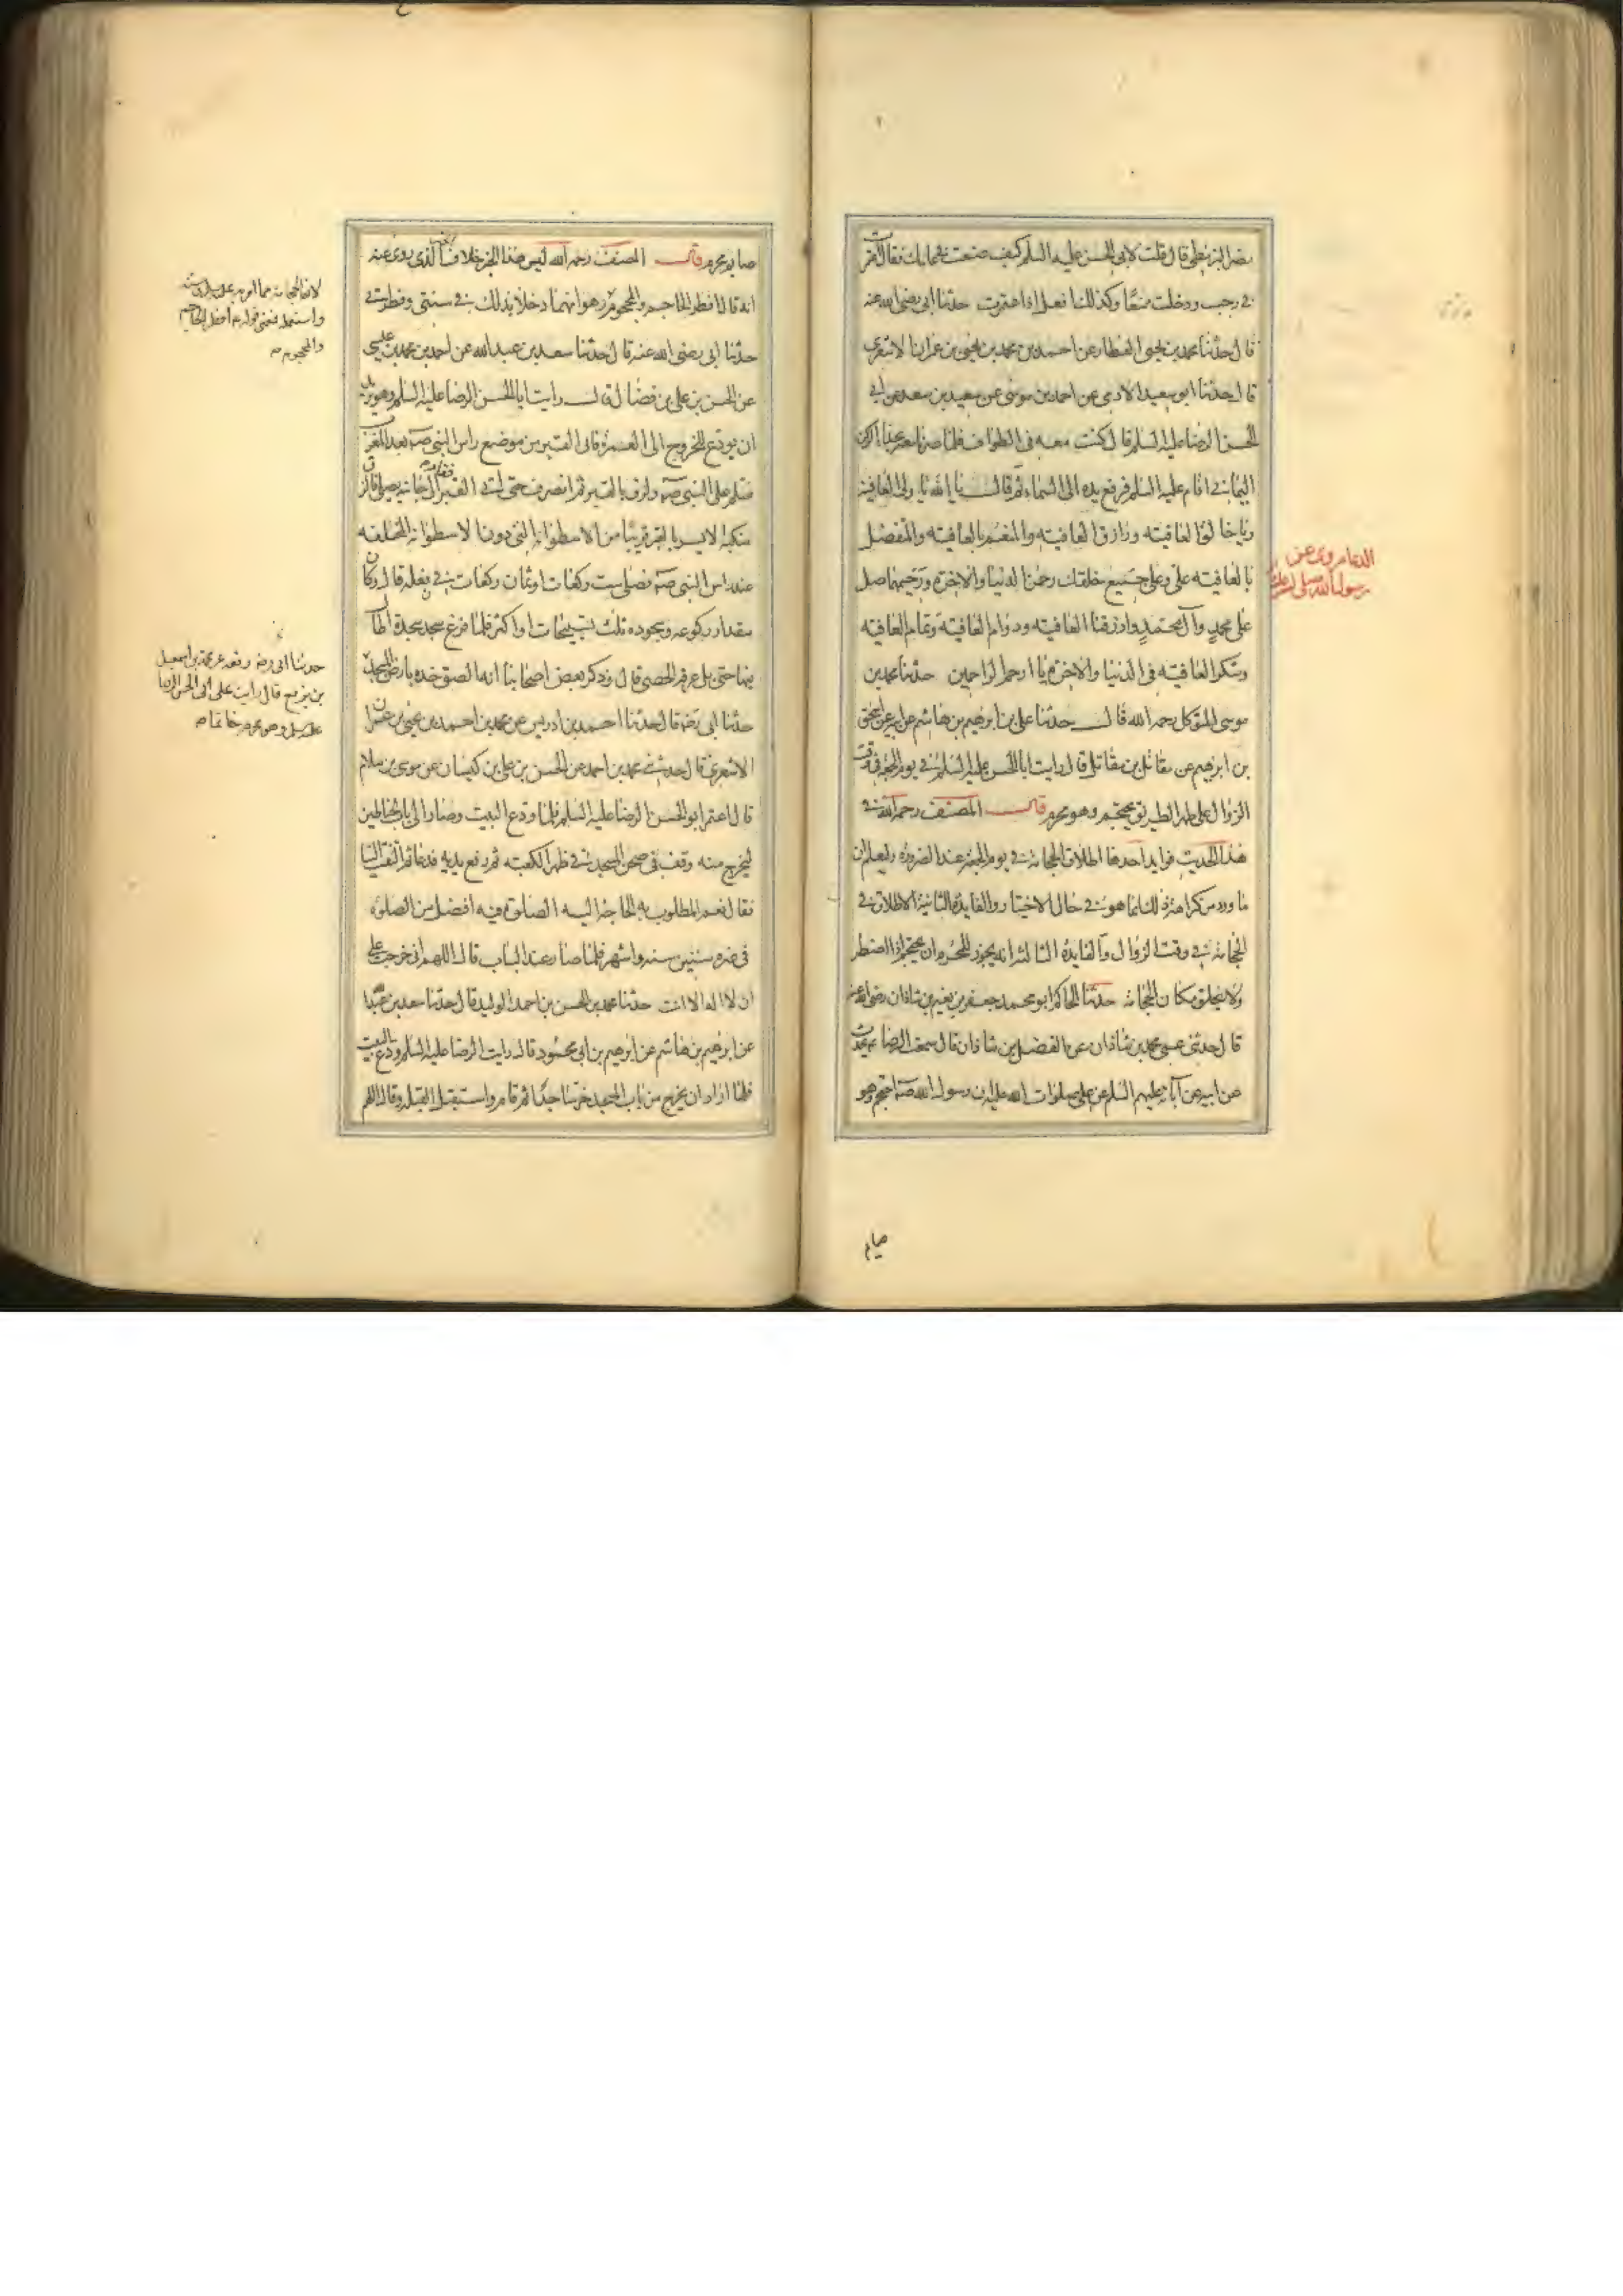 نصر البزنطي قال قلت لابي الحسن عليه السلم كيف صنعت في عامك فقال اعتمرت
في رجب ودخلت متمتعا وكذلك افعل اذا اعتمرت حدثنا ابي رضي الله عنه
قال حدثنا محمد بن يحيى العطار عن احمد بن محمد بن يحيى بن عمران الاشعري
قال حدثنا ابو سعيد الادمي عن احمد بن موسى عن سعيد بن سعد عن ابي
الحسن الرضا عليه السلم قال كنت معه في الطواف فلما صرنا معه بحذا الركن
اليماني اقام عليه السلم فرفع يده الى السماء ثم قال يا الله يا ولي العافية
ويا خالق العافيته ورازق العافيته والمنعم بالعافيته والمتفضل
بالعافيته علي وعلى جميع خلقك رحمن الدنيا والاخرة ورحيمهما صل
على محمد وآل محمد وارزقنا العافيته ودوام العافيته وتمام العافيته
وشكر العافيته في الدنيا والاخرة يا ارحم الراحمين حدثنا محمد بن
موسى المتوكل رحمه الله قال حدثنا علي بن ابرهيم بن هاشم عن ابيه عن اسحق
بن ابرهيم عن مقاتل بن مقاتل قال رايت ابا الحسن عليه السلم في يوم الجمعة في وقت
الزوال على ظهر الطريق يحتجم وهو محرم قال المصنف رحمه الله في
هذا الحديث فوايد احدها اطلاق الحجامة في يوم الجمعة عند الضرورة ليعلم ان
ما ورد من كراهة ذلك انما هو في حال الاختيار والفايدة الثانية الاطلاق في
الحجامة في وقت الزوال والفايدة الثالثة انه يجوز للمحرم ان يحتجم اذا اضطر
ولا يحلق مكان الحجامة حدثنا الحاكم ابو محمد جعفر بن نعيم بن شاذان رضي الله عنه
قال حدثني عمي محمد بن شاذان عن الفضل بن شاذان قال سمعت الرضا ع يحدث
عن ابيه عن آبائه عليهم السلم عن علي صلوات الله عليه ان رسول الله صه احتجم وهو
الدعا مروي عن
رسول الله صلى الله عليه
صايم
صايم محرم قال المصنف رحمه الله ليس هذا الخبر خلاف الخبر الذي روي عنه
انه قال افطر الحاجم والمحجوم وهو انهما دخلا بذلك في سنتي وفطرتي
حدثنا ابي رضي الله عنه قال حدثنا سعد بن عبد الله عن احمد بن محمد بن عيسى
عن الحسن بن علي بن فضال قال رايت ابا الحسن الرضا عليه السلم وهو يريد
ان يودع للخروج الى العمرة فاتى القبر من موضع راس النبي صه بعد المغرب
فسلم على النبي صه ولزق بالقبر ثم انصرف حتى اتى القبر فقام الى جانبه يصلي فالزق
منكبه الايسر بالقبر قريبا من الاسطوانة التي دون الاسطوانة المخلقه
عند راس النبي صه فصلى ست ركعات او ثمان ركعات في نعله قال وكان
مقدار ركوعه وسجوده ثلث تسبيحات او اكثر فلما فرغ سجد سجدة اطال
فيها حتى بل عرقه الحصى قال وذكر بعض اصحابنا انه الصق خده بارض المسجد
حدثنا ابي رضه قال حدثنا احمد بن ادريس عن محمد بن احمد بن يحيى بن عمران
الاشعري قال حدثني محمد بن احمد عن الحسن بن علي بن كيسان عن موسى بن سلام
قال اعتمر ابو الحسن الرضا عليه السلم فلما ودع البيت وصار الى باب الحناطين
ليخرج منه وقف في صحن المسجد في ظهر الكعبته ثم رفع يديه فدعا ثم التفت الينا
فقال نعم المطلوب به الحاجة اليه الصلوة فيه افضل من الصلوة
في غيره ستين سنة واشهر فلما صار عند الباب قال اللهم اني خرجت على
ان لا اله الا انت حدثنا محمد بن الحسن بن احمد الوليد قال حدثنا سعد بن عبد الله
عن ابرهيم بن هاشم عن ابرهيم بن ابي محمود قال رايت الرضا عليه السلم ودع البيت
فلما اراد ان يخرج من باب المسجد خر ساجدا ثم قام واستقبل القبلة وقال اللهم
لان الحجامة مما امر به
واستعمله فمعنى قوله ع افطر الحاجم
والمحجوم
حدثنا ابي رضه رفعه عن محمد بن اسمعيل
بن بزيع قال رايت على ابي الحسن الرضا
وهو محرم خاتما